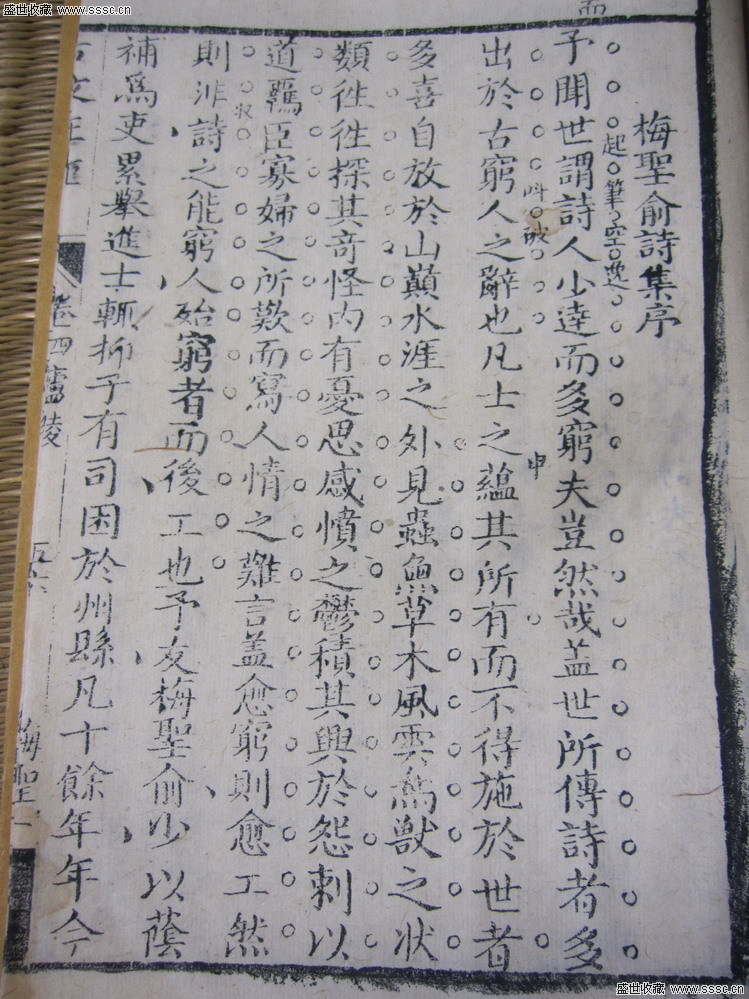 盛世收藏 www.sssc.cn
盛世收藏 www.sssc.cn
梅聖俞詩集序
起筆空逸
予聞世謂詩人少達而多窮夫豈然哉盖世所傳詩者多
叫破
出於古窮人之辭也凡士之蘊其所有而不得施於世者
申
多喜自放於山巔水涯之外見蟲魚草木風雲鳥獸之狀
類徃徃探其竒怪内有憂思感憤之鬱積其興於怨刺以
道羈臣寡婦之所歎而寫人情之難言盖愈窮則愈工然
收
則非詩之能窮人殆窮者而後工也予友梅聖俞少以蔭
補爲吏累舉進士輒抑于有司困於州縣凡十餘年年今
卷四廬陵
梅聖
盛世收藏 www.sssc.cn
盛世收藏 www.sssc.cn